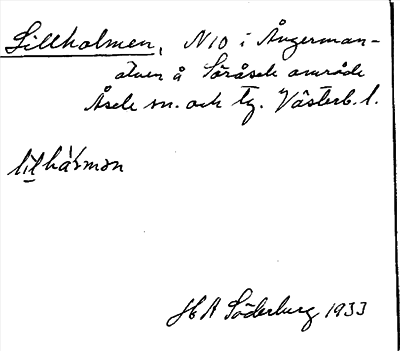 Lillholmen, N10 i Ångerman-
älven å Söråsele område
Åsele sn. och tg. Västerb. l.
H A Söderburg 1933